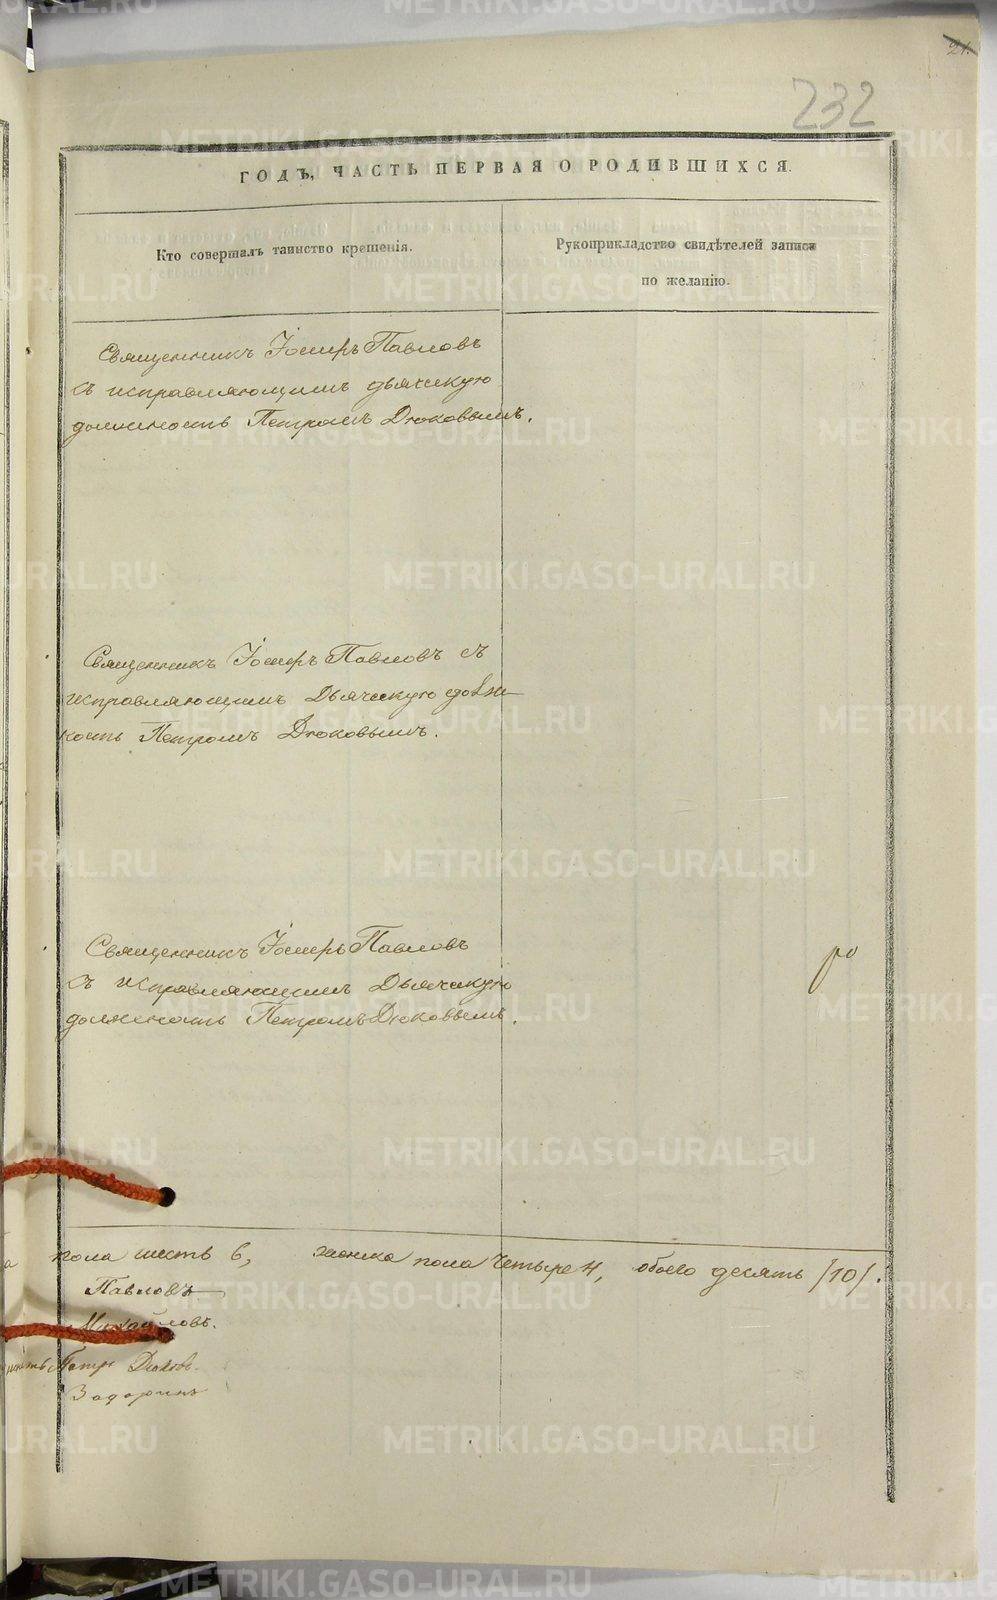 21.
232
ГОДЪ, ЧАСТЬ ПЕРВАЯ О РОДИВШИХСЯ.
Кто совершалъ таинство крещенія.
Рукоприкладство свидѣтелей записи
по желанію.
Священникъ Іосифъ Павловъ
съ исправляющимъ дьячекую
должность Петромъ Дюковымъ.
Священникъ Іосифъ Павловъ съ
исправляющимъ Дьячекую долж
ность Петромъ Дюковымъ.
Священникъ Іосифъ Павловъ
съ исправляющимъ Дьячекую
должность Петромъ Дюковымъ.
пола шесть 6, женска пола Четыре 4, обоего десять /10/.
Павловъ
Михайловъ.
Петръ Дюковъ.
Задоринъ
METRIKI.GASO-URAL.RU